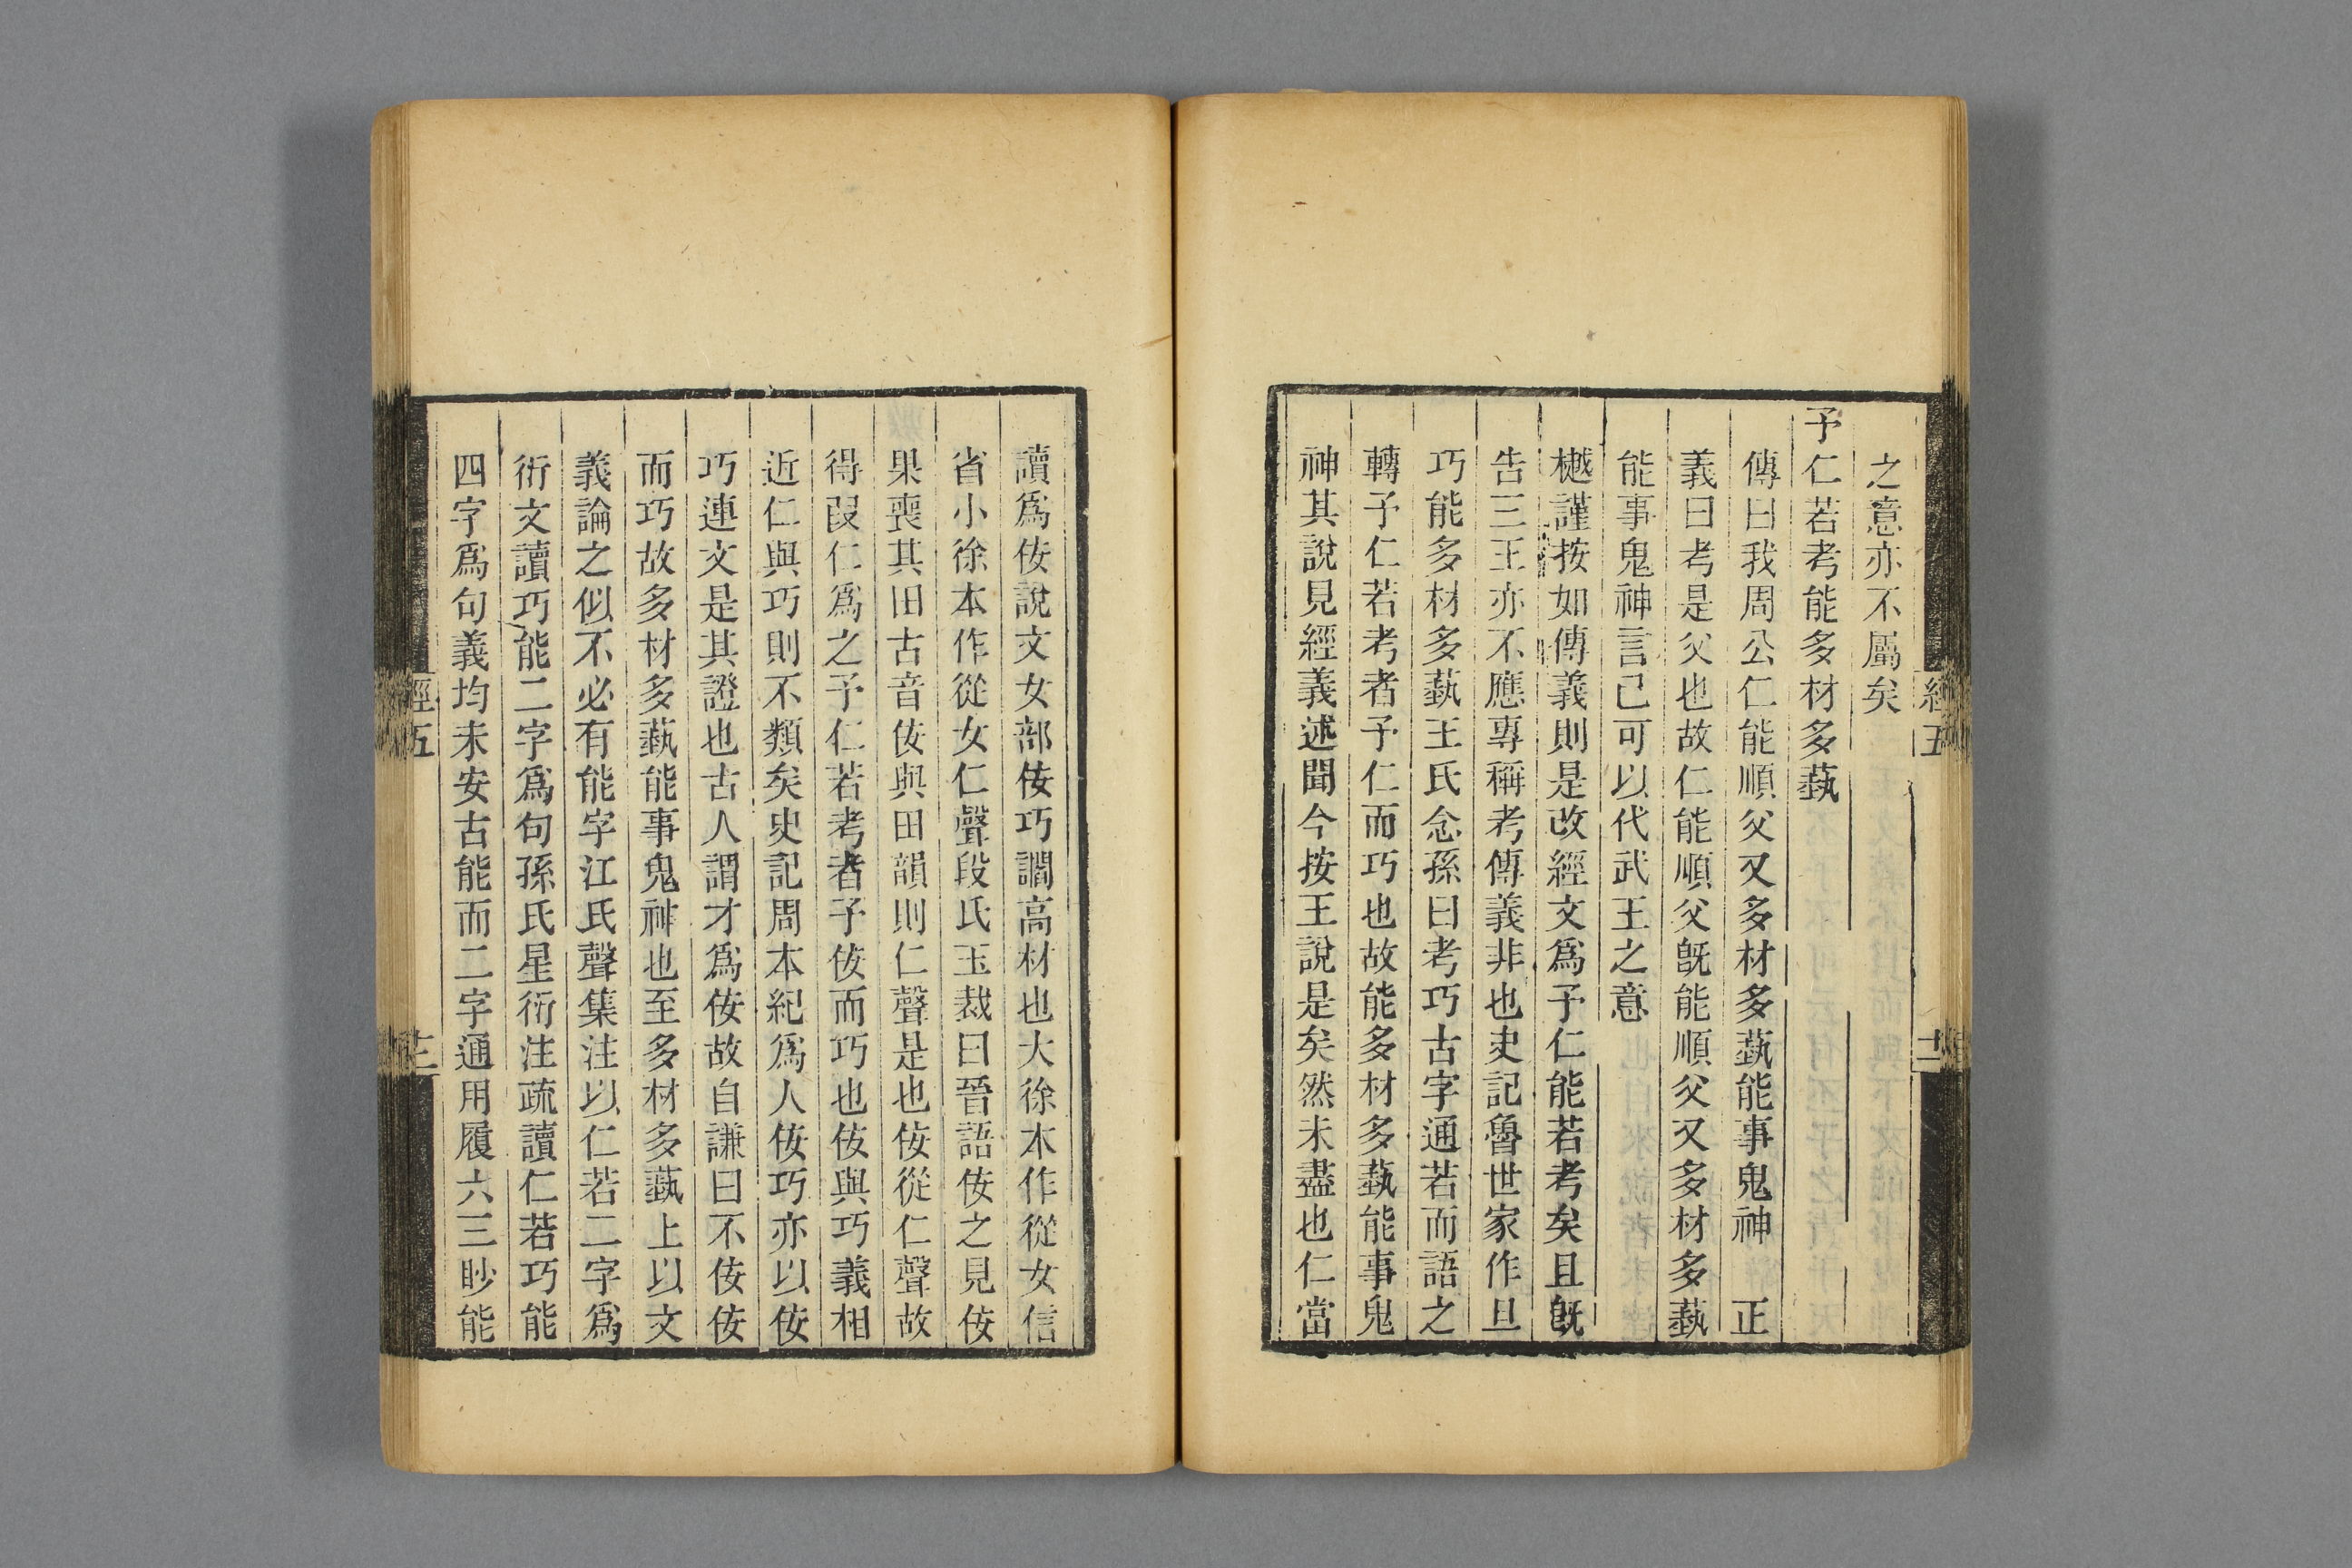 經五
十二
之意亦不屬矣
予仁若考能多材多蓺
傳曰我周公仁能順父又多材多蓺能事鬼神 正
義曰考是父也故仁能順父旣能順父又多材多蓺
能事鬼神言己可以代武王之意
樾謹按如傳義則是改經文爲予仁能若考矣且旣
告三王亦不應專稱考傳義非也史記魯世家作旦
巧能多材多蓺王氏念孫曰考巧古字通若而語之
轉予仁若考者予仁而巧也故能多材多蓺能事鬼
神其說見經義述聞今按王說是矣然未盡也仁當
讀爲佞說文女部佞巧讇高材也大徐本作從女信
省小徐本作從女仁聲段氏玉裁曰晉語佞之見佞
果喪其田古音佞與田韻則仁聲是也佞從仁聲故
得叚仁爲之予仁若考者予佞而巧也佞與巧義相
近仁與巧則不類矣史記周本紀爲人佞巧亦以佞
巧連文是其證也古人謂才爲佞故自謙曰不佞佞
而巧故多材多蓺能事鬼神也至多材多蓺上以文
義論之似不必有能字江氏聲集注以仁若二字爲
衍文讀巧能二字爲句孫氏星衍注疏讀仁若巧能
四字爲句義均未安古能而二字通用履六三眇能
經五
十三